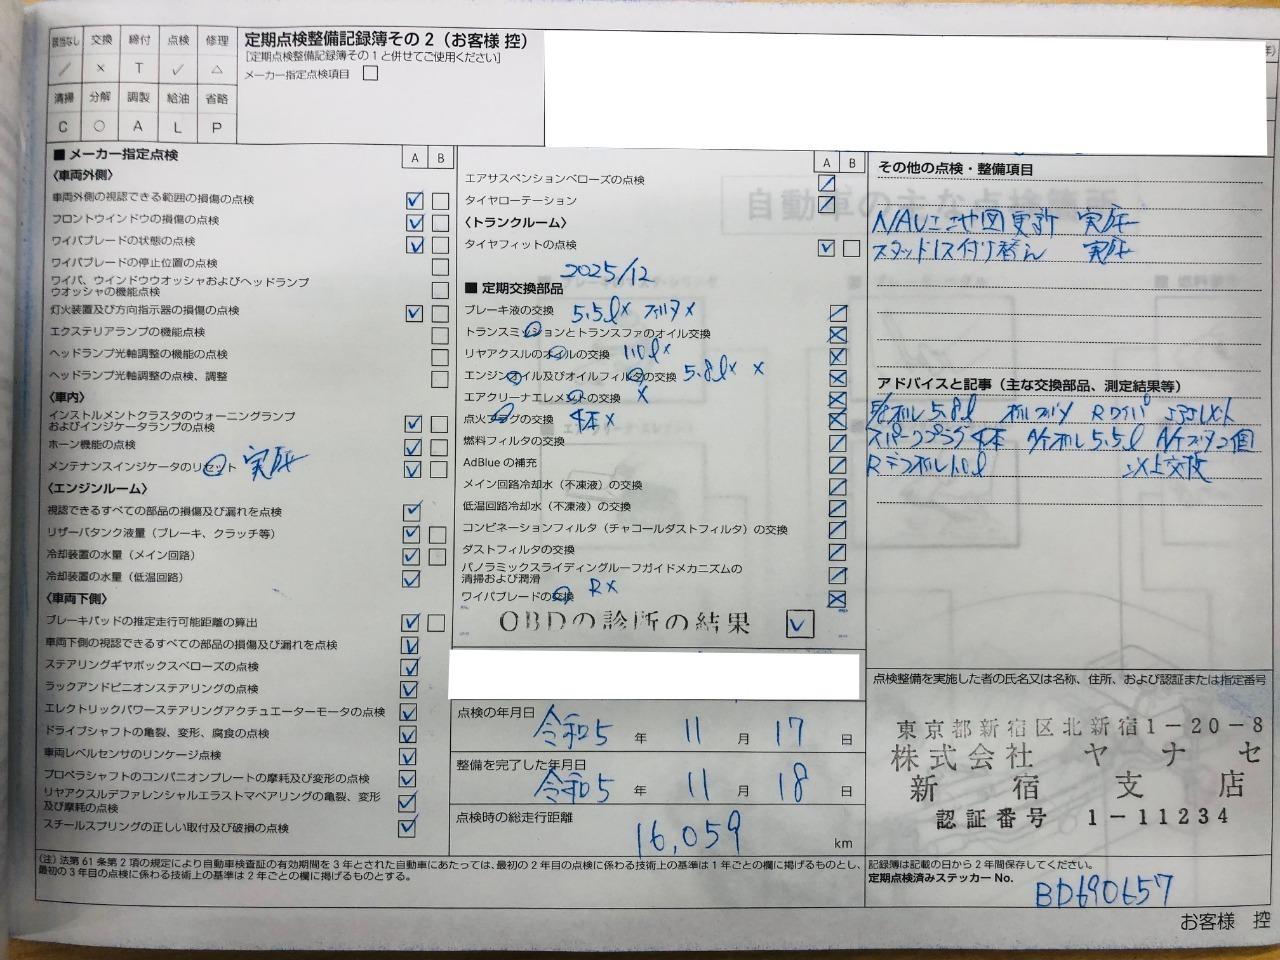 該当なし 交換 締付 点検 修理
／ × T ✓ △
清掃 分解 調製 給油 省略
C ○ A L P
定期点検整備記録簿その2（お客様 控）
［定期点検整備記録簿その1と併せてご使用ください］
メーカー指定点検項目
年）
■ メーカー指定点検 A B
〈車両外側〉
車両外側の視認できる範囲の損傷の点検
フロントウインドウの損傷の点検
ワイパブレードの状態の点検
ワイパブレードの停止位置の点検
ワイパ、ウインドウウオッシャおよびヘッドランプ
ウオッシャの機能点検
灯火装置及び方向指示器の損傷の点検
エクステリアランプの機能点検
ヘッドランプ光軸調整の機能の点検
ヘッドランプ光軸調整の点検、調整
〈車内〉
インストルメントクラスタのウォーニングランプ
およびインジケータランプの点検
ホーン機能の点検
メンテナンスインジケータのリセット 実施
〈エンジンルーム〉
視認できるすべての部品の損傷及び漏れを点検
リザーバタンク液量（ブレーキ、クラッチ等）
冷却装置の水量（メイン回路）
冷却装置の水量（低温回路）
〈車両下側〉
ブレーキパッドの推定走行可能距離の算出
車両下側の視認できるすべての部品の損傷及び漏れを点検
ステアリングギヤボックスベローズの点検
ラックアンドピニオンステアリングの点検
エレクトリックパワーステアリングアクチュエーターモータの点検
ドライブシャフトの亀裂、変形、腐食の点検
車両レベルセンサのリンケージ点検
プロペラシャフトのコンパニオンプレートの摩耗及び変形の点検
リヤアクスルデファレンシャルエラストマベアリングの亀裂、変形
及び摩耗の点検
スチールスプリングの正しい取付及び破損の点検
A B
エアサスペンションベローズの点検
タイヤローテーション
〈トランクルーム〉
タイヤフィットの点検
2025/12
■ 定期交換部品
ブレーキ液の交換 5.5ℓ×
トランスミッションとトランスファのオイル交換
リヤアクスルのオイルの交換 1.0ℓ×
エンジンオイル及びオイルフィルタの交換 5.8ℓ× ×
エアクリーナエレメントの交換 ×
点火プラグの交換 4本×
燃料フィルタの交換
AdBlueの補充
メイン回路冷却水（不凍液）の交換
低温回路冷却水（不凍液）の交換
コンビネーションフィルタ（チャコールダストフィルタ）の交換
ダストフィルタの交換
パノラミックスライディングルーフガイドメカニズムの
清掃および潤滑
ワイパブレードの交換 R×
OBDの診断の結果
点検の年月日
令和5 年 11 月 17 日
整備を完了した年月日
令和5 年 11 月 18 日
点検時の総走行距離
16,059 km
その他の点検・整備項目
NAVI 地図更新 実施
スタッドレス付け替え 実施
アドバイスと記事（主な交換部品、測定結果等）
5.8ℓ Rワイパ
スパークプラグ4本 5.5ℓ
1.0ℓ 以上交換
点検整備を実施した者の氏名又は名称、住所、および認証または指定番号
東京都新宿区北新宿1－20－8
株式会社 ヤナセ
新宿支店
認証番号 1－11234
（注）法第61条第2項の規定により自動車検査証の有効期間を3年とされた自動車にあたっては、最初の2年目の点検に係わる技術上の基準は1年ごとの欄に掲げるものとし、
最初の3年目の点検に係わる技術上の基準は2年ごとの欄に掲げるものとする。
記録簿は記載の日から2年間保存してください。
定期点検済みステッカーNo.
BD690657
お客様 控